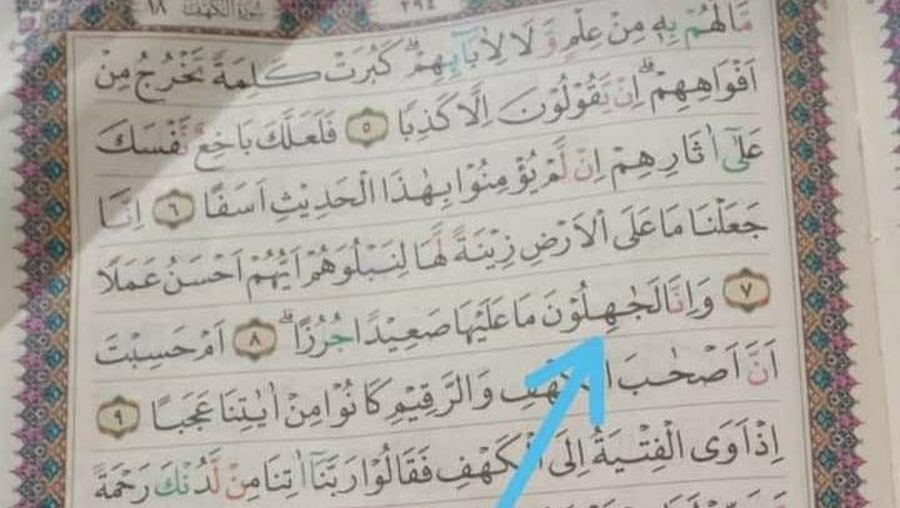 ٢٩٤ سُوْرَةُ الْكَهْفِ ١٨
مَا لَهُمْ بِهٖ مِنْ عِلْمٍ وَّلَا لِاٰبَاۤىِٕهِمْۗ كَبُرَتْ كَلِمَةً تَخْرُجُ مِنْ
اَفْوَاهِهِمْۗ اِنْ يَّقُوْلُوْنَ اِلَّا كَذِبًا ٥ فَلَعَلَّكَ بَاخِعٌ نَّفْسَكَ
عَلٰٓى اٰثَارِهِمْ اِنْ لَّمْ يُؤْمِنُوْا بِهٰذَا الْحَدِيْثِ اَسَفًا ٦ اِنَّا
جَعَلْنَا مَا عَلَى الْاَرْضِ زِيْنَةً لَّهَا لِنَبْلُوَهُمْ اَيُّهُمْ اَحْسَنُ عَمَلًا
٧ وَاِنَّا لَجٰهِلُوْنَ مَا عَلَيْهَا صَعِيْدًا جُرُزًاۗ ٨ اَمْ حَسِبْتَ
اَنَّ اَصْحٰبَ الْكَهْفِ وَالرَّقِيْمِ كَانُوْا مِنْ اٰيٰتِنَا عَجَبًا ٩
اِذْ اَوَى الْفِتْيَةُ اِلَى الْكَهْفِ فَقَالُوْا رَبَّنَآ اٰتِنَا مِنْ لَّدُنْكَ رَحْمَةً